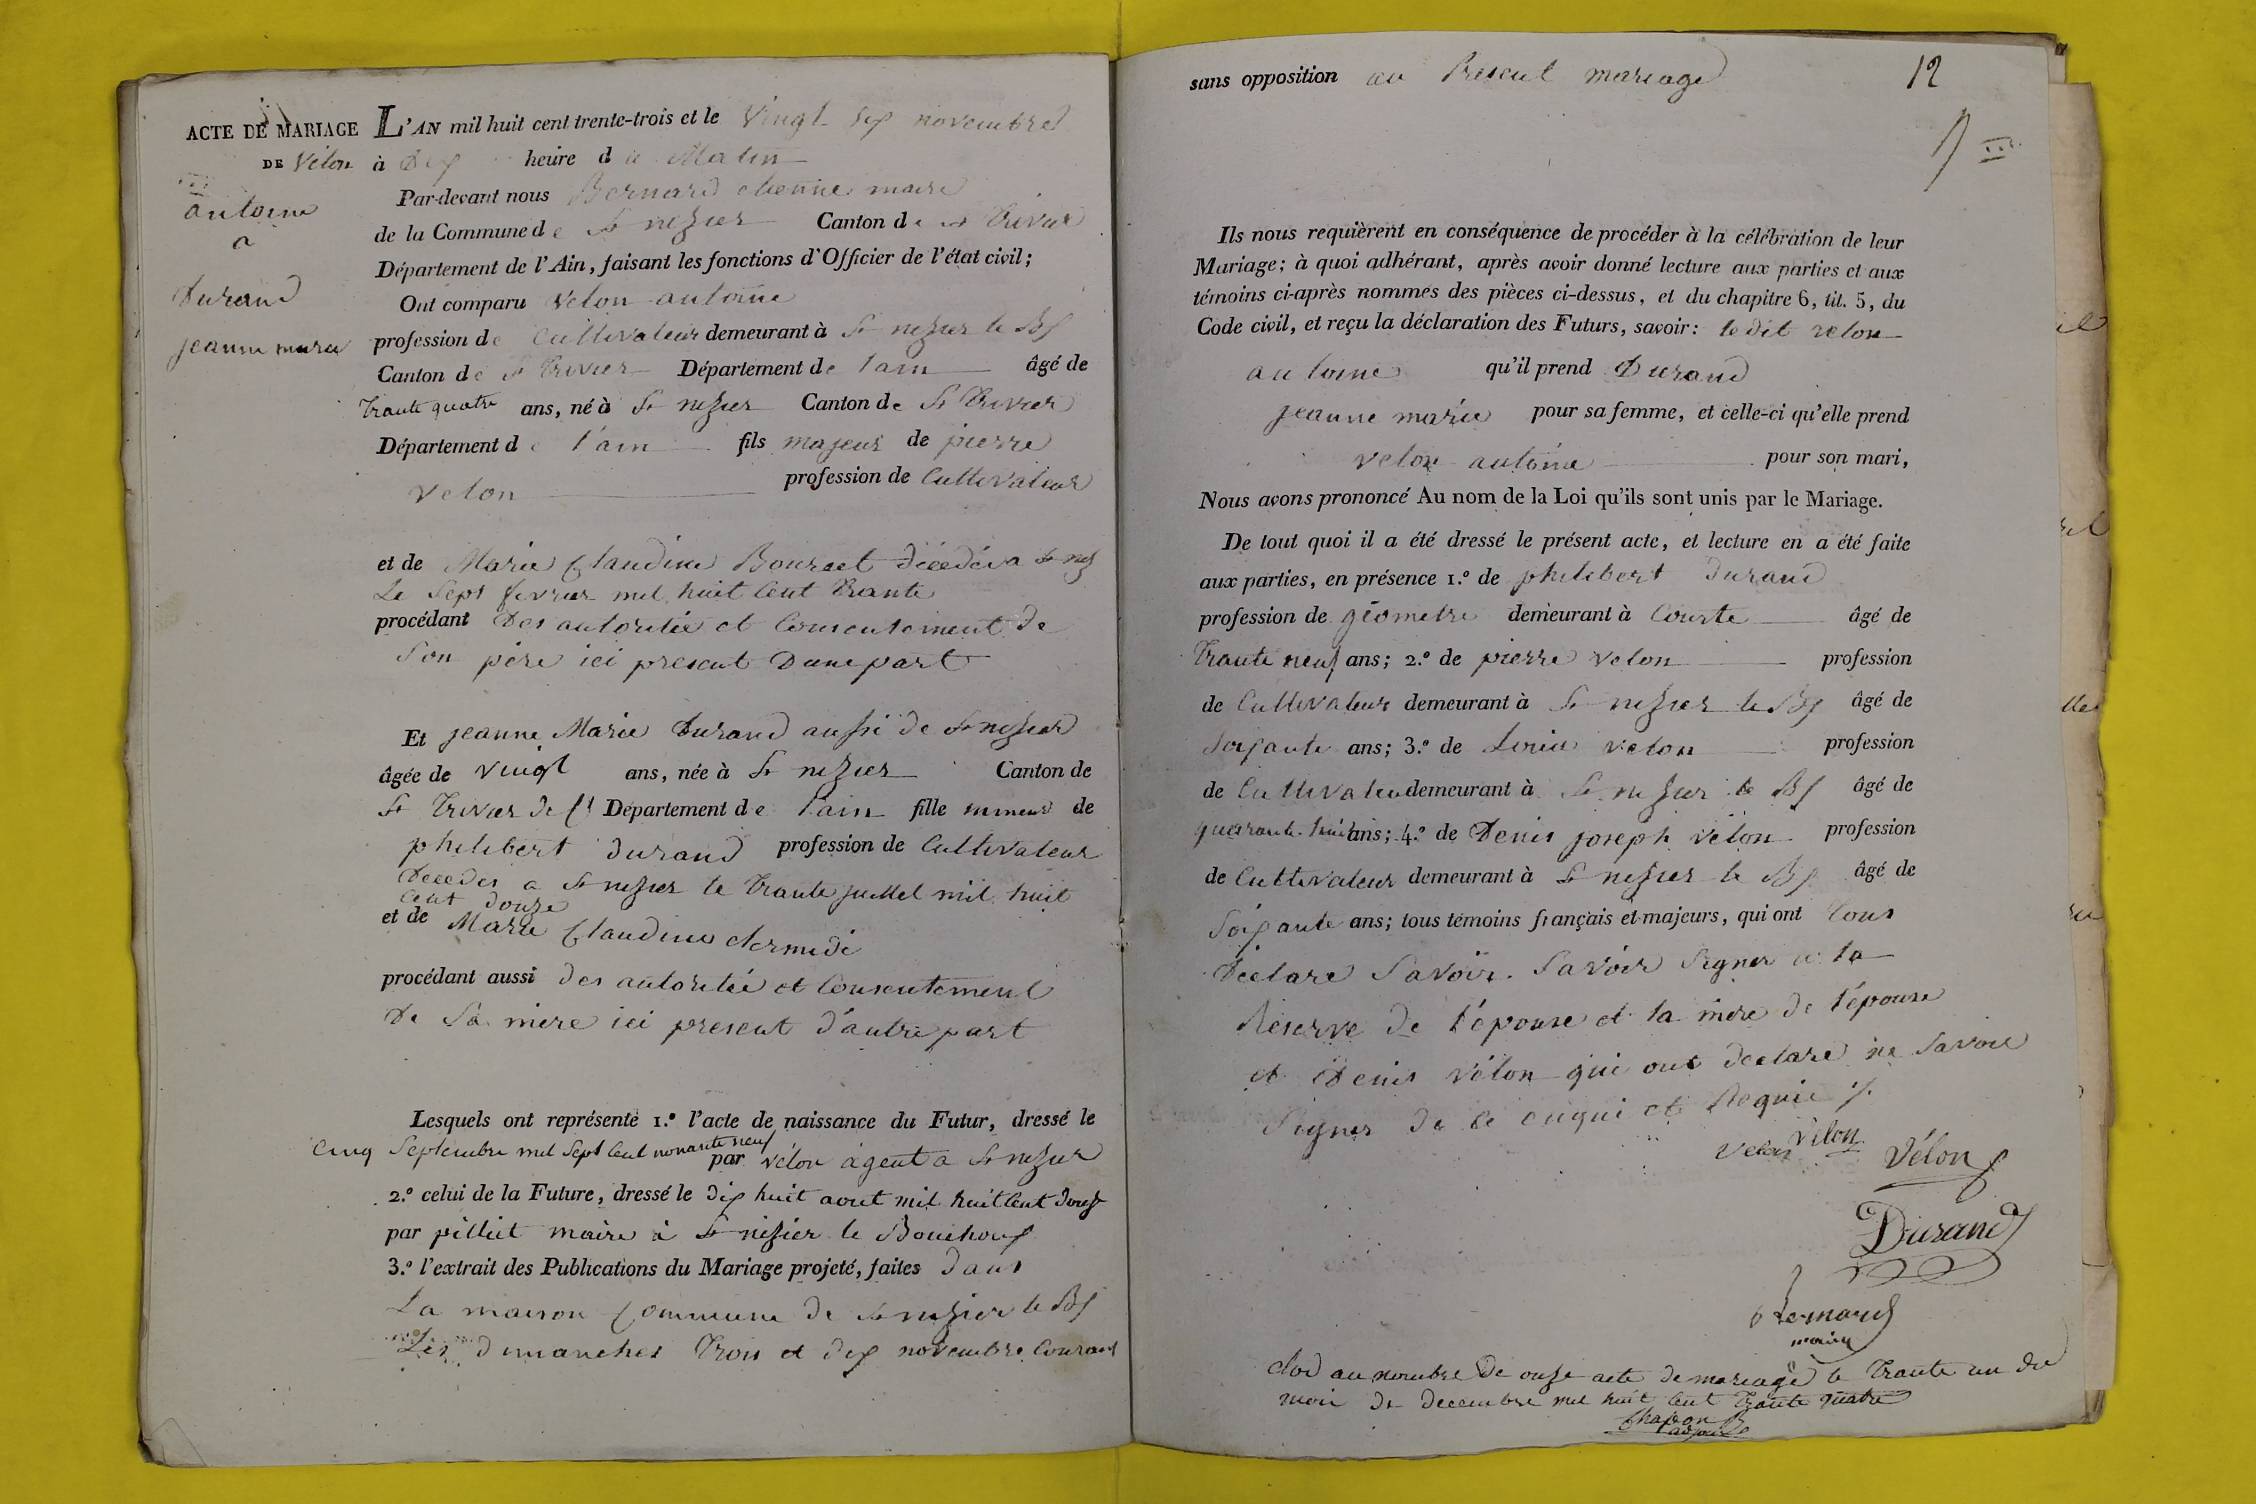 11
ACTE DE MARIAGE
DE Vélon
antoine
a
Durand
jeanne marie
L'AN mil huit cent trente-trois et le Vingt six novembre
à Dix heure du Matin
Par-devant nous Bernard etienne maire
de la Commune de St nizier Canton de St Trivier
Département de l'Ain, faisant les fonctions d'Officier de l'état civil;
Ont comparu Velon antoine
profession de Cultivateur demeurant à St nizier le Bx
Canton de St Trivier Département de l'ain âgé de
Trante quatre ans, né à St nizier Canton de St Trivier
Département de l'ain fils majeur de pierre
velon profession de Cultivateur
et de Marie Claudine Bourcet décédéé a St niz
Le Sept fevrier mil huit Cent Trante
procédant Des autoritée et Consentement de
Son pére ici present Dune part
Et jeanne Marie Durand aussi de St nizier
âgée de vingt ans, née à St nizier Canton de
St Trivier de Ct Département de l'ain fille mineur de
philibert durand profession de Cultivateur
Decedes a St nizier le Trante juillet mil huit
Cent douze
et de Marie Claudine
procédant aussi des autoritée et Consentement
De Sa mere ici present d'autre part
Lesquels ont représenté 1.º l'acte de naissance du Futur, dressé le
Cinq Septembre mil Sept Cent nonante neuf
par vélon agent a St nizier
2.º celui de la Future, dressé le dix huit aout mil huit Cent douze
par pilliet maire à St nizier le Bouchoux
3.º l'extrait des Publications du Mariage projeté, faites dans
La maison Commune de St nizier le Bx
Les dimanches Trois et dix novembre Courant
12
sans opposition au Present mariage
Ils nous requièrent en conséquence de procéder à la célébration de leur
Mariage; à quoi adhérant, après avoir donné lecture aux parties et aux
témoins ci-après nommés des pièces ci-dessus, et du chapitre 6, tit. 5, du
Code civil, et reçu la déclaration des Futurs, savoir: le dit velon
antoine qu'il prend Durand
jeanne marie pour sa femme, et celle-ci qu'elle prend
velon antoine pour son mari,
Nous avons prononcé Au nom de la Loi qu'ils sont unis par le Mariage.
De tout quoi il a été dressé le présent acte, et lecture en a été faite
aux parties, en présence 1.º de philibert durand
profession de géometre demeurant à Courte âgé de
Trante neuf ans; 2.º de pierre velon profession
de Cultivateur demeurant à St nizier le Bx âgé de
Soixante ans; 3.º de velon profession
de Cultivateur demeurant à St nizier le Bx âgé de
quarante huit ans; 4.º de Denis joseph vélon profession
de Cultivateur demeurant à St nizier le Bx âgé de
Soixante ans; tous témoins français et majeurs, qui ont Tous
Declare Savoir Savoir Signer a la
Reserve de l'épouse et la mere de l'épouse
et Denis vélon qui ont declare ne Savoir
Signer de ce enqui et Requie
velon Vélon Vélon
Durand
Bernard
maire
Clod au nombre De onze acte de mariage le Trante un du
moi de decembre mil huit Cent Trante quatre